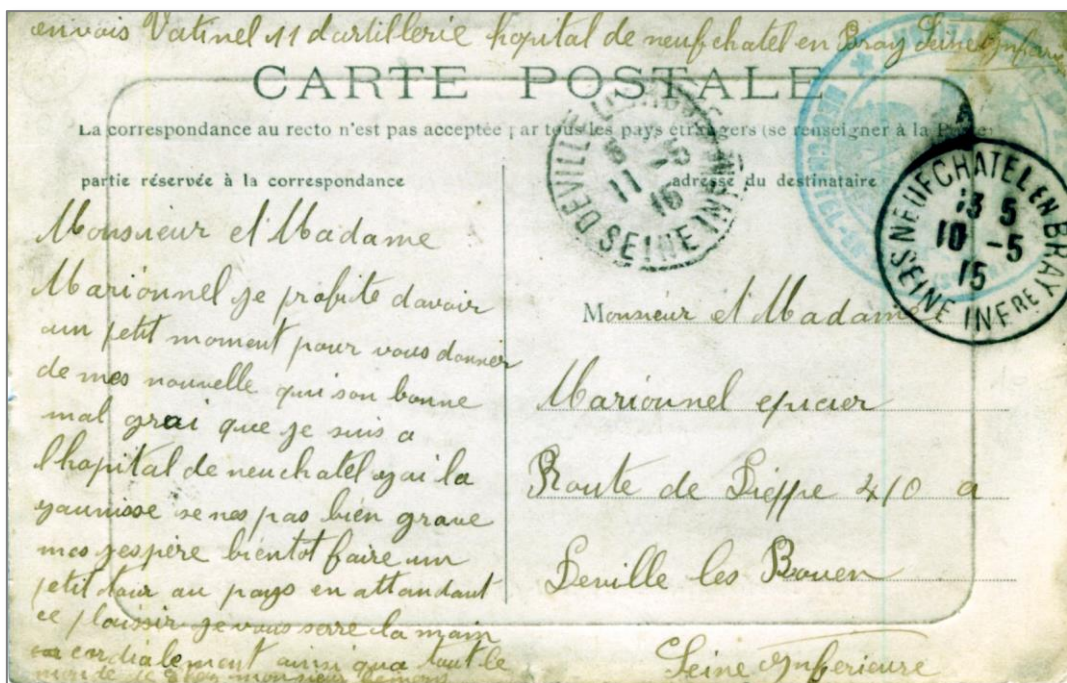 envois Vatinel 11 d'artillerie hopital de neufchatel en Bray Seine Inferieure
CARTE POSTALE
La correspondance au recto n'est pas acceptée par tous les pays étrangers (se renseigner à la Poste)
partie réservée à la correspondance
adresse du destinataire
DEVILLE SEINE INF
11 5 15
NEUFCHATEL EN BRAY
13 5
10 -5
15
SEINE INFRE
Monsieur et Madame
Marionnel je profite davoir
un petit moment pour vous donner
de mes nouvelle qui son bonne
mal grai que je suis a
lhopital de neuchatel yai la
yaunisse se nes pas bien grave
mes yespère bientot faire un
petit tour au pays en attandant
ce plaissir je vous serre la main
cordialement ainsi qua tout le
monde de chez monsieur
Monsieur et Madame
Marionnel epicier
Route de Dieppe 410 a
Deville les Rouen
Seine Inferieure